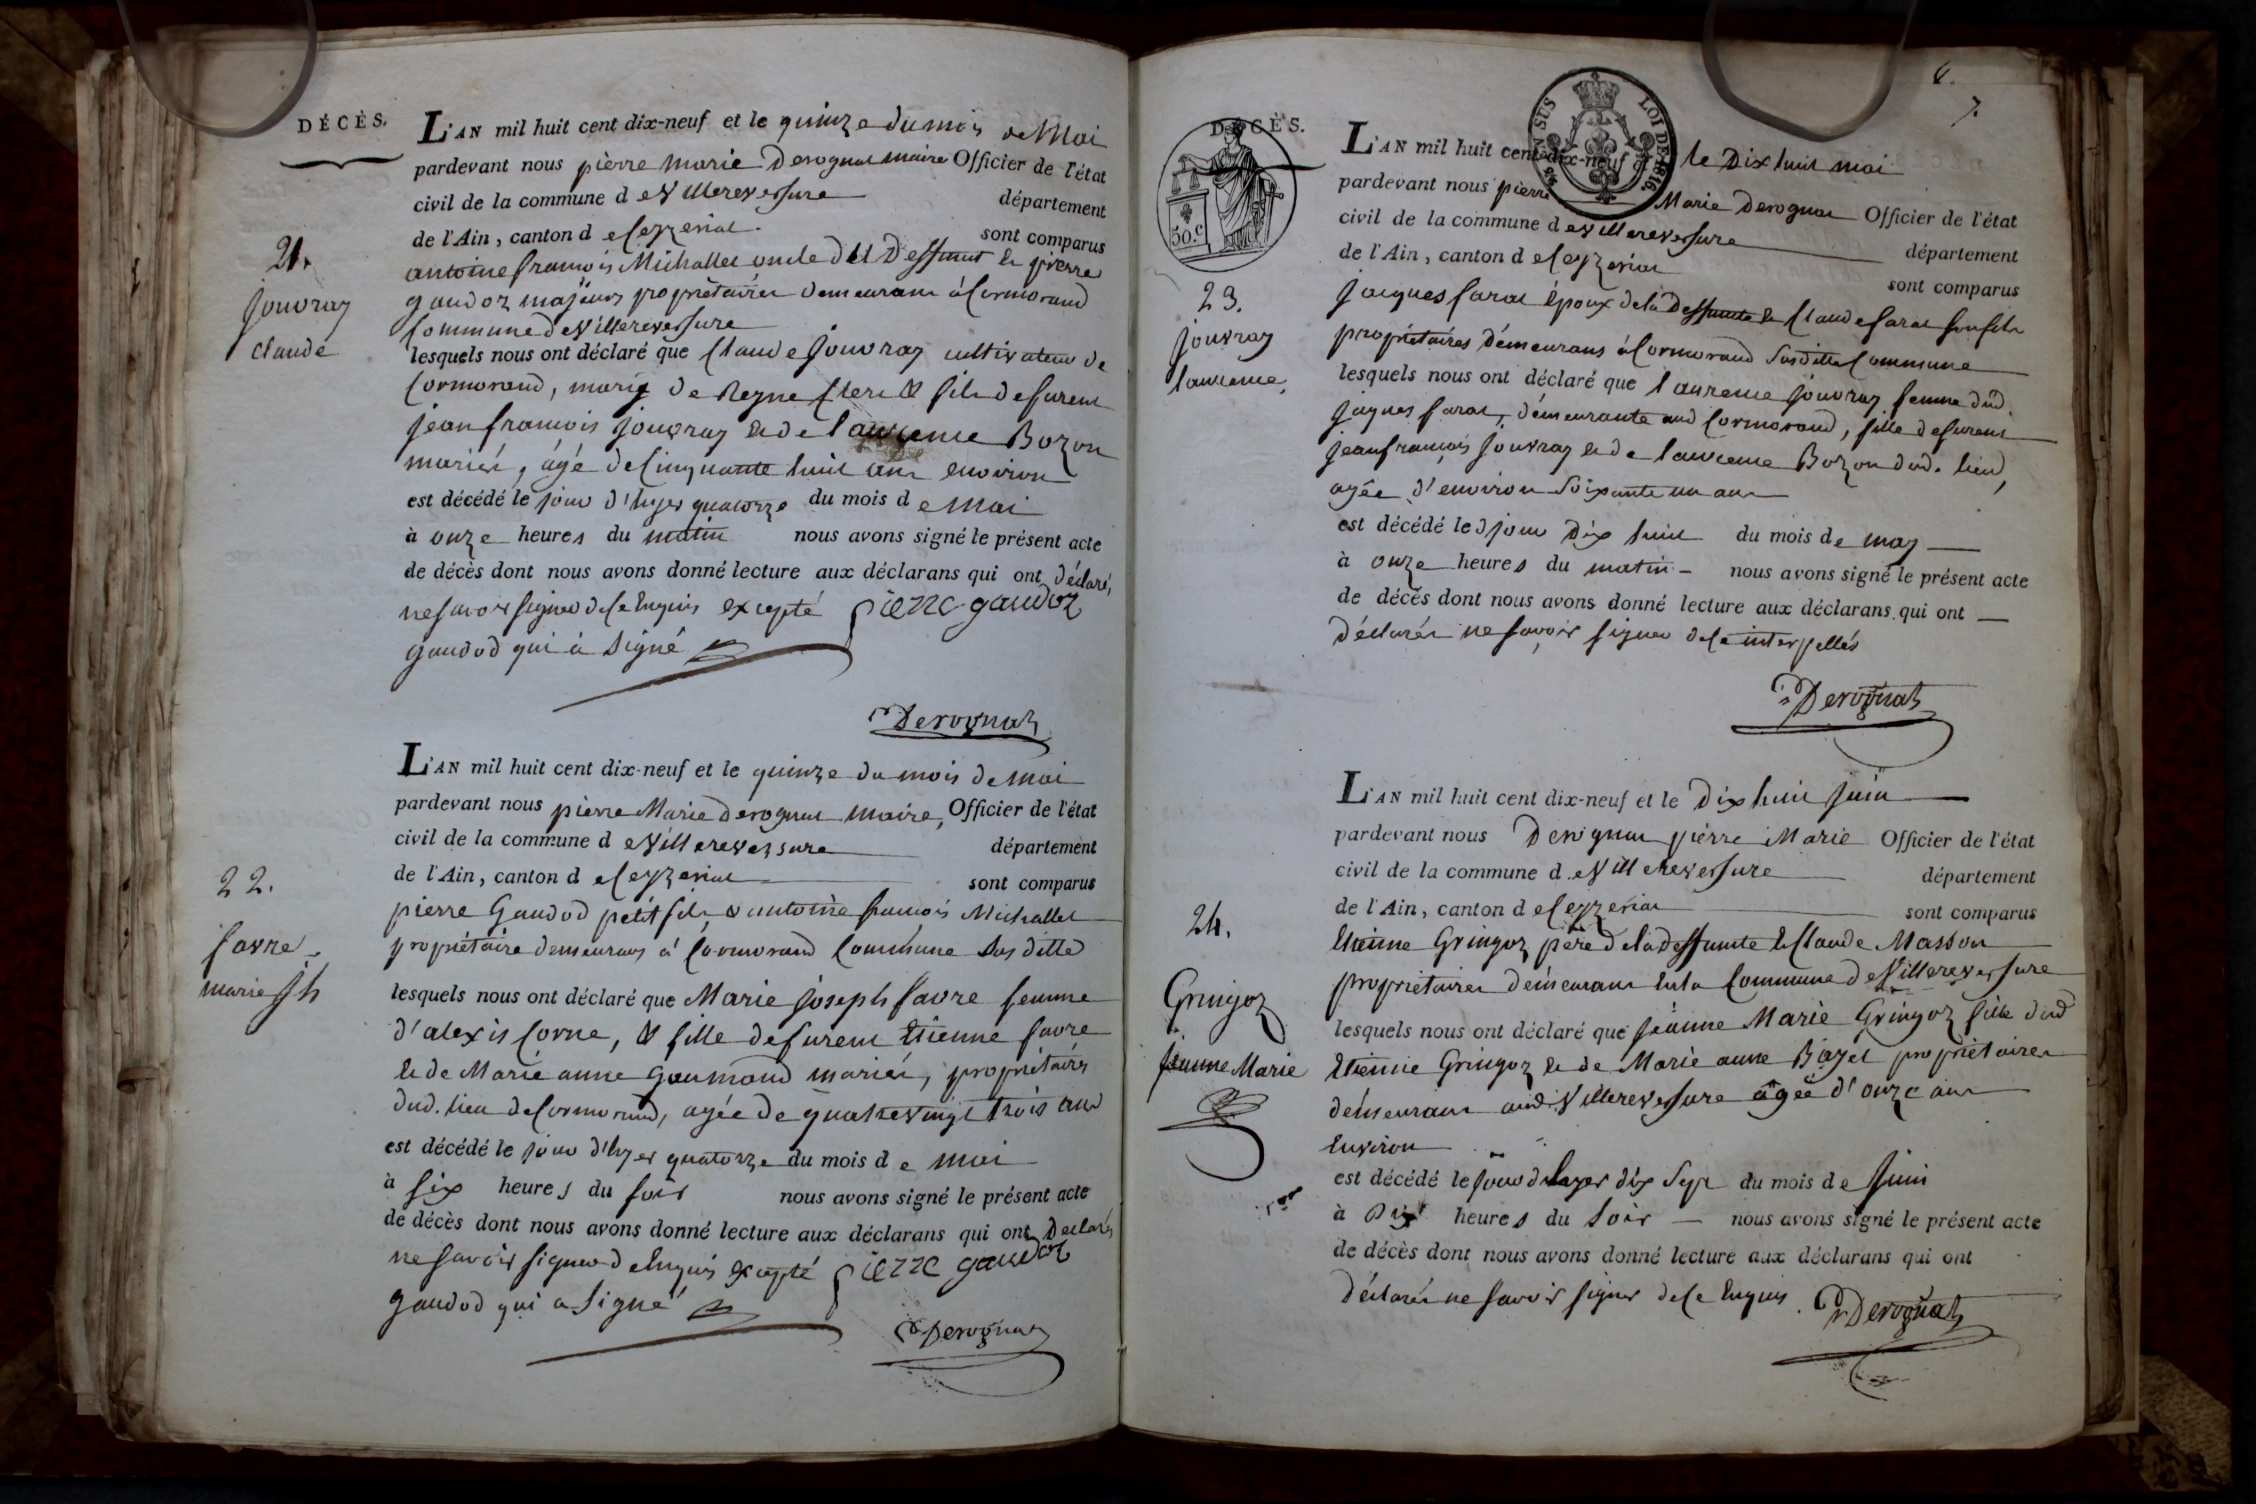 DÉCÈS.
L'AN mil huit cent dix-neuf et le quinze du mois de Mai
pardevant nous pierre marie Derognat maire Officier de l'état
civil de la commune d e Villereversure département
de l'Ain, canton d e Ceyzeriat. sont comparus
21.
jouvray
claude
antoine francois Michallet oncle du deffunt et pierre
gaudoz majeurs propriétaires demeurans à Cormorand
Commune de Villereversure
lesquels nous ont déclaré que Claude jouvray cultivateur de
Cormorand, marié de Reyne Clerc & fils defurent
jean francois jouvray et de laurence Bozon
mariés, âgé de Cinquante huit ans environ
est décédé le jour d'hyer quatorze du mois d e Mai
à onze heures du matin nous avons signé le présent acte
de décès dont nous avons donné lecture aux déclarans qui ont déclaré,
ne savoir signer de ce enquis excepté pierre gaudoz
gaudod qui à signé
Derognat
L'AN mil huit cent dix-neuf et le quinze du mois de mai
pardevant nous pierre Marie Derognat maire, Officier de l'état
civil de la commune d e Villereversure département
de l'Ain, canton d e Ceyzeriat sont comparus
22.
favre
marie jh
pierre Gaudod petit fils & antoine francois Michallet
propriétaire demeurans à Cormorand Commune Sus ditte
lesquels nous ont déclaré que Marie joseph favre femme
d'alexis Corne, & fille defurent Etienne favre
et de Marie anne Gaumand mariés, propriétaires
dud. lieu de Cormorand, agée de quatrevingt trois ans
est décédé le jour d'hyer quatorze du mois d e mai
à six heures du soir nous avons signé le présent acte
de décès dont nous avons donné lecture aux déclarans qui ont Déclarés
ne savoir signer d enquis excepté pierre gaudoz
gaudod qui a signé
Derognat
7
DÉCÈS.
50.c
EN SUS LOI DE 1816.
L'AN mil huit cent dix-neuf et le Dix huit mai
pardevant nous pierre Marie Derognat Officier de l'état
civil de la commune d e Villereversure département
de l'Ain, canton d e Ceyzeriat sont comparus
23.
jouvray
laurence.
jacques farat époux de la Deffunte et Claude farat son fils
propriétaires démeurans à Cormorand Susditte Commune
lesquels nous ont déclaré que laurence jouvray femme dud.
jaques farat, démeurante aud Cormorand, fille defurent
jean francois jouvray et de laurence Bozon dud. lieu,
agée d'environ soixante un ans
est décédé le d jour Dix huit du mois d e may
à onze heures du matin nous avons signé le présent acte
de décès dont nous avons donné lecture aux déclarans qui ont
déclarés ne savoir signer de ce interpellés
Derognat
L'AN mil huit cent dix-neuf et le Dix huit juin
pardevant nous Derognat pierre Marie Officier de l'état
civil de la commune d e Villereversure département
de l'Ain, canton d e Ceyzeriat sont comparus
24.
Gringoz
jeanne Marie
Etienne Gringoz père de la deffunte et Claude Masson
propriétaires démeurans en la Commune de Villereversure
lesquels nous ont déclaré que jeanne Marie Gringoz fille dud
Etienne Gringoz et de Marie anne Bozet propriétaires
démeurans aud. Villereversure agée d'onze ans
environ
est décédé le jour d'hyer dix sept du mois d e juin
à Dix heures du soir nous avons signé le présent acte
de décès dont nous avons donné lecture aux déclarans qui ont
déclarés ne savoir signer de ce enquis. Derognat